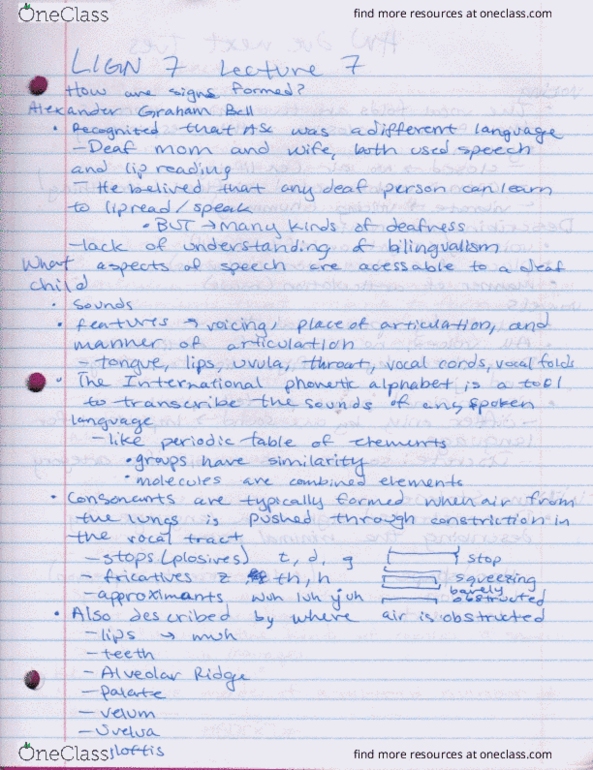 OneClass
find more resources at oneclass.com
LIGN 7 Lecture 7
How are signs formed?
Alexander Graham Bell
• Recognized that ASL was a different language
– Deaf mom and wife, both used speech
and lip reading
– He belived that any deaf person can learn
to lipread/speak
• BUT → many kinds of deafness
– lack of understanding of bilingualism
What aspects of speech are acessable to a deaf
child
• Sounds
• features → voicing, place of articulation, and
manner of articulation
– tongue, lips, uvula, throat, vocal cords, vocal folds
• The International phonetic alphabet is a tool
to transcribe the sounds of any spoken
language
– like periodic table of elements
• groups have similarity
• molecules are combined elements
• Consonants are typically formed when air from
the lungs is pushed through constriction in
the vocal tract
– stops (plosives) t, d, g } stop
– fricatives z th, h squeezing
– approximants wuh luh juh barely obstructed
• Also described by where air is obstructed
– lips → muh
– teeth
– Alveolar Ridge
– Palate
– velum
– Uvelua
OneClass loftis
find more resources at oneclass.com